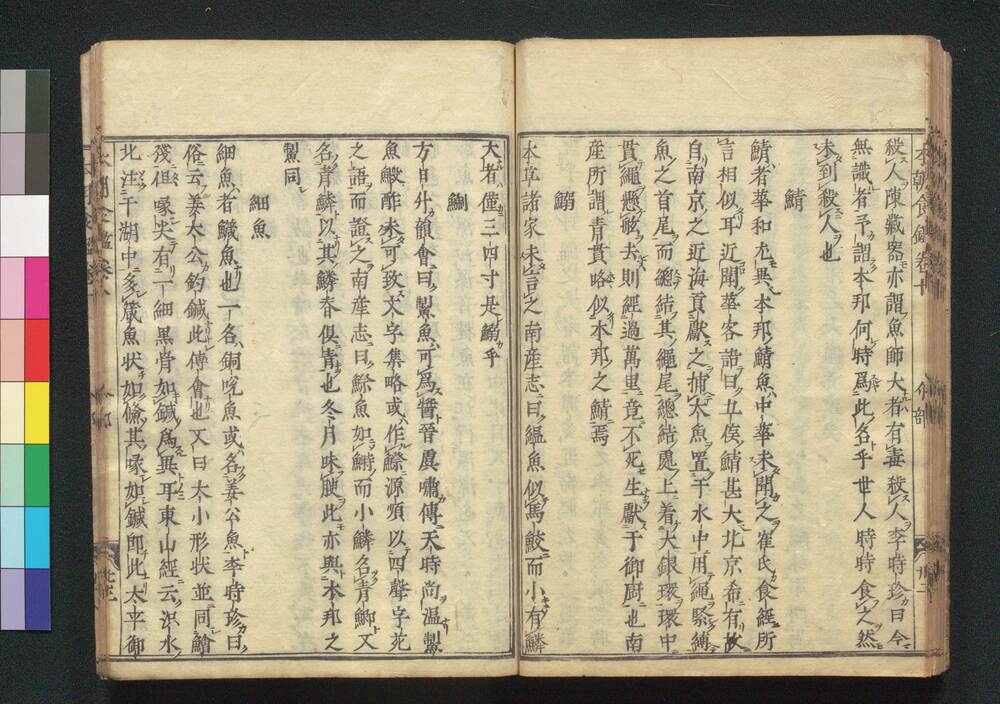 本朝食鑑卷十
殺人陳藏器亦謂魚師大者有毒殺人李時珍曰今
無識者予謂本邦何時爲此名乎世人時時食之然
未到殺人也
鯖
鯖者華和尤異本邦鯖魚中華未聞之崔氏食經所
言相似耳近聞華客語曰五侯鯖甚大北京希有故
自南京之近海貢獻之捕大魚置于水中用繩緊縛
魚之首尾而總結其繩尾總結處上着大銀環環中
貫繩懸舷去則經過萬里竟不死生獻于御厨也南
産所謂青貫略似本邦之鯖焉
鰯
本草諸家未言之南産志曰鰛魚似馬鮫而小有鱗
大者僅三四寸是鰯乎
鯯
方日升韻會曰鮆魚可爲醬晉虞嘯傳天時尚温鮆
魚鰕鮓未可致文字集略或作鰶源順以四聲字苑
之語而證之南産志曰鰶魚如鰣而小鱗名青鯽又
名青鱗以其鱗脊俱青也冬月味腴此亦與本邦之
鮆同
細魚
細魚者鱵魚也一名銅哾魚或名姜公魚李時珍曰
俗云姜太公釣鍼此傳會也又曰大小形状並同鱠
殘但喙尖有一細黑骨如鍼爲異耳東山經云沢水
北注于湖中多箴魚状如儵其喙如鍼即此太平御